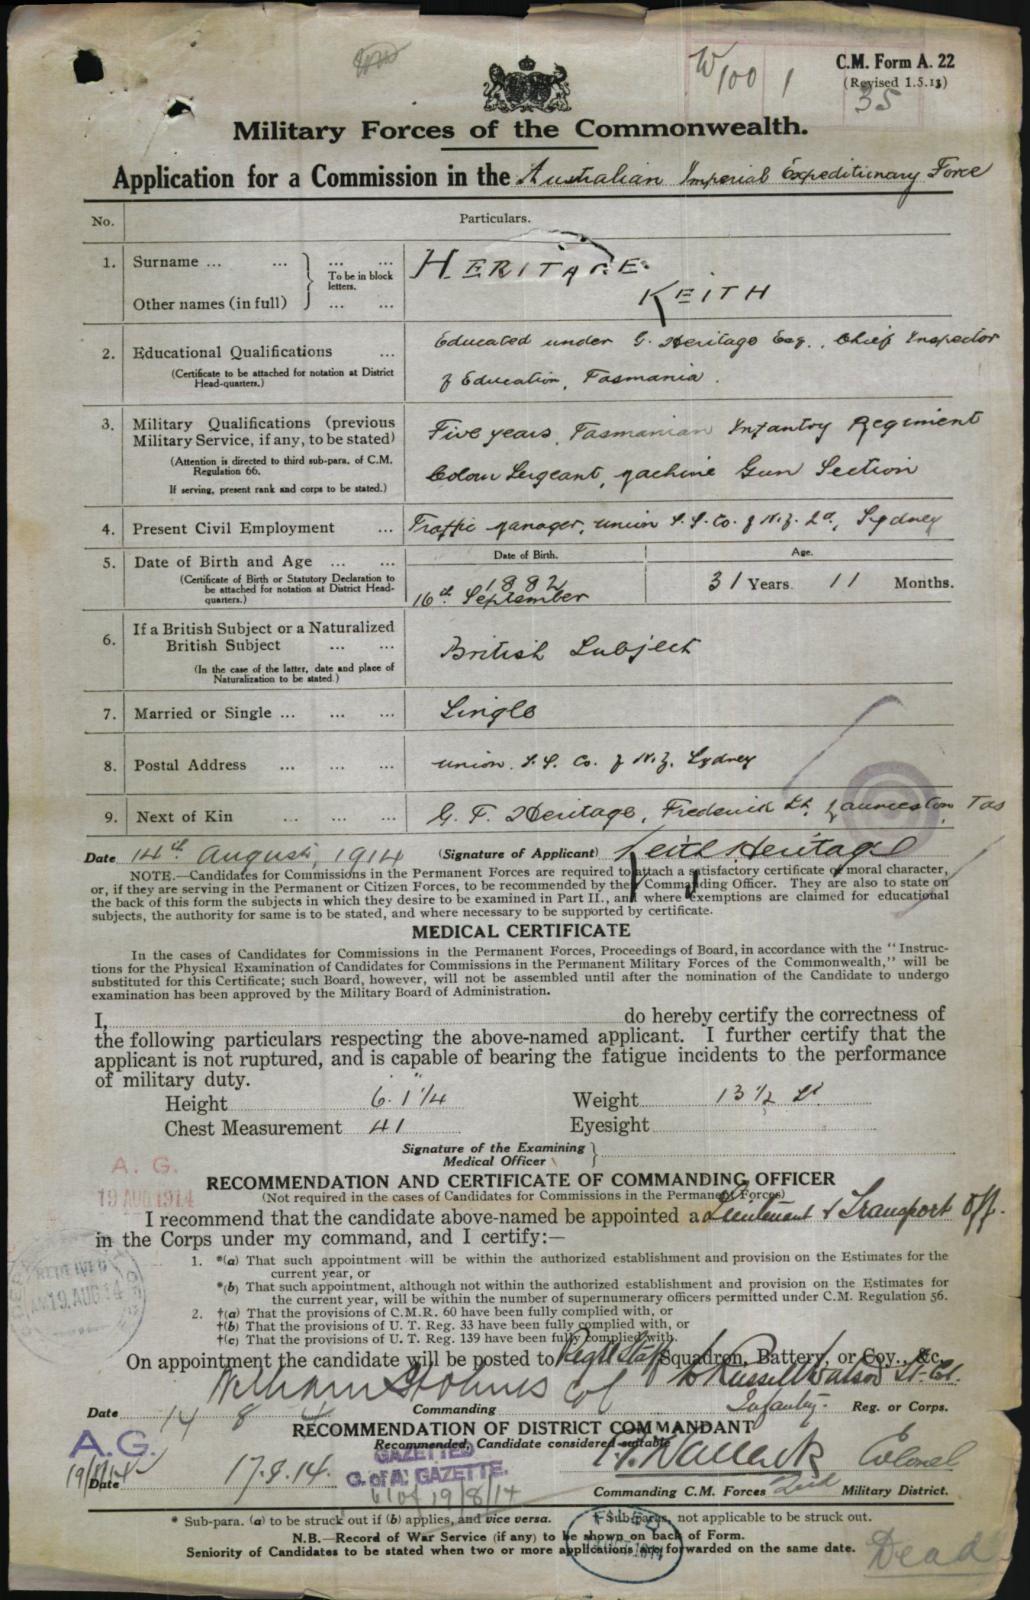 W 100 1
C.M. Form A. 22
(Revised 1.5.13)
35
Military Forces of the Commonwealth.
Application for a Commission in the Australian Imperial Expeditionary Force
No. Particulars.
1. Surname ... ... ... ... HERITAGE
To be in block letters.
Other names (in full) ... ... KEITH
2. Educational Qualifications ... Educated under G. Heritage Esq., Chief Inspector
(Certificate to be attached for notation at District Head-quarters.) of Education, Tasmania.
3. Military Qualifications (previous Five years, Tasmanian Infantry Regiment
Military Service, if any, to be stated)
(Attention is directed to third sub-para. of C.M. Regulation 66. Colour Sergeant, Machine Gun Section
If serving, present rank and corps to be stated.)
4. Present Civil Employment ... Traffic Manager, Union S.S. Co. of N.Z. Ld, Sydney
5. Date of Birth and Age ... ... Date of Birth. Age.
(Certificate of Birth or Statutory Declaration to be attached for notation at District Head-quarters.) 16th September 1882 31 Years. 11 Months.
6. If a British Subject or a Naturalized
British Subject ... ... British Subject
(In the case of the latter, date and place of Naturalization to be stated.)
7. Married or Single ... ... ... Single
8. Postal Address ... ... ... Union S.S. Co. of N.Z. Sydney
9. Next of Kin ... ... ... G. F. Heritage, Frederick St, Launceston Tas
Date 14th August, 1914 (Signature of Applicant) Keith Heritage
NOTE.—Candidates for Commissions in the Permanent Forces are required to attach a satisfactory certificate of moral character,
or, if they are serving in the Permanent or Citizen Forces, to be recommended by the Commanding Officer. They are also to state on
the back of this form the subjects in which they desire to be examined in Part II., and where exemptions are claimed for educational
subjects, the authority for same is to be stated, and where necessary to be supported by certificate.
MEDICAL CERTIFICATE
In the cases of Candidates for Commissions in the Permanent Forces, Proceedings of Board, in accordance with the "Instruc-
tions for the Physical Examination of Candidates for Commissions in the Permanent Military Forces of the Commonwealth," will be
substituted for this Certificate; such Board, however, will not be assembled until after the nomination of the Candidate to undergo
examination has been approved by the Military Board of Administration.
I, do hereby certify the correctness of
the following particulars respecting the above-named applicant. I further certify that the
applicant is not ruptured, and is capable of bearing the fatigue incidents to the performance
of military duty.
Height 6. 1 1/4" Weight 13 1/2 st
Chest Measurement 41 Eyesight
Signature of the Examining
Medical Officer
A. G.
19 AUG 1914
RECOMMENDATION AND CERTIFICATE OF COMMANDING OFFICER
(Not required in the cases of Candidates for Commissions in the Permanent Forces)
I recommend that the candidate above-named be appointed a Lieutenant & Transport Off.
in the Corps under my command, and I certify:—
1. *(a) That such appointment will be within the authorized establishment and provision on the Estimates for the
current year, or
*(b) That such appointment, although not within the authorized establishment and provision on the Estimates for
the current year, will be within the number of supernumerary officers permitted under C.M. Regulation 56.
2. †(a) That the provisions of C.M.R. 60 have been fully complied with, or
†(b) That the provisions of U. T. Reg. 33 have been fully complied with, or
†(c) That the provisions of U. T. Reg. 139 have been fully complied with.
RECEIVED
AM 19. AUG. 14
On appointment the candidate will be posted to Regtl Staff Squadron, Battery, or Coy., &c.
William Holmes Col W Russell Watson Lt-Col.
Date 14 8 4 Commanding Infantry. Reg. or Corps.
RECOMMENDATION OF DISTRICT COMMANDANT
Recommended, Candidate considered suitable
A.G.
19/8/14
GAZETTED
C. of A. GAZETTE.
61 of 19/8/14
Date 17.8.14. Wallack Colonel
Commanding C.M. Forces 2nd Military District.
* Sub-para. (a) to be struck out if (b) applies, and vice versa. † Sub-paras. not applicable to be struck out.
N.B.—Record of War Service (if any) to be shown on back of Form.
Seniority of Candidates to be stated when two or more applications are forwarded on the same date.
FILED
OCT 1914
Dead